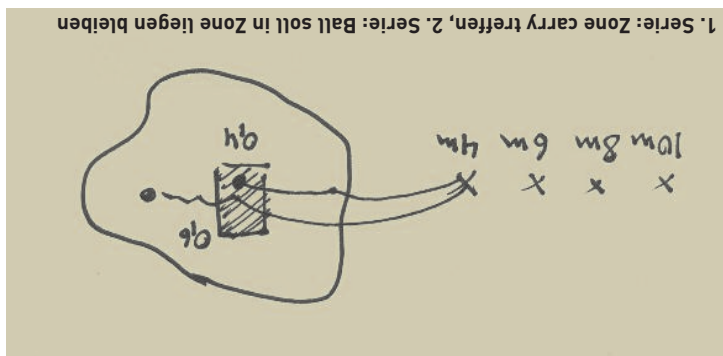 0,6
0,4
10m 8m 6m 4m
1. Serie: Zone carry treffen, 2. Serie: Ball soll in Zone liegen bleiben